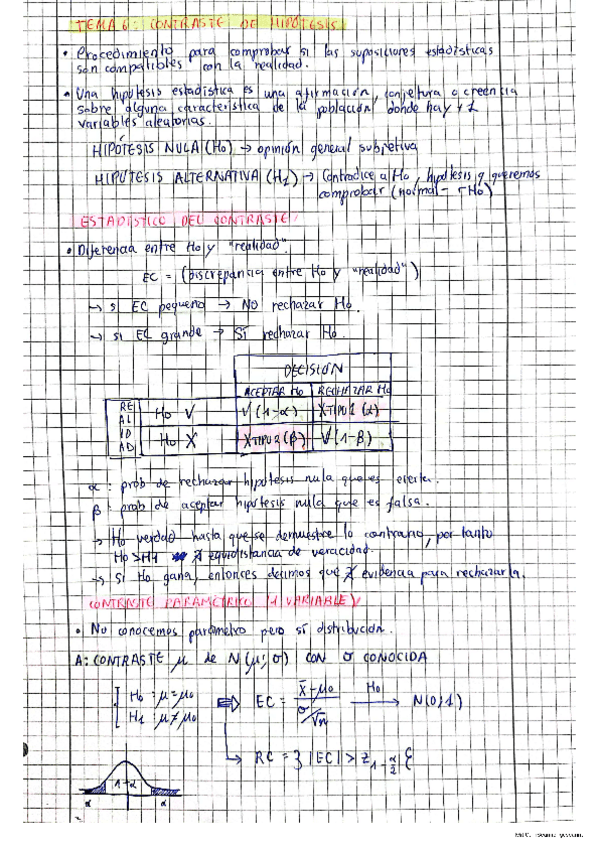 TEMA 6: CONTRASTE DE HIPÓTESIS
• Procedimiento para comprobar si las suposiciones estadísticas
son compatibles con la realidad.
• Una hipótesis estadística es una afirmación, conjetura o creencia
sobre alguna característica de la población, donde hay + 1
variables aleatorias.
HIPÓTESIS NULA (H0) → opinión general subjetiva
HIPÓTESIS ALTERNATIVA (H1) → Contradice a H0, hipótesis q queremos
comprobar (normal - ¬H0)
ESTADÍSTICO DEL CONTRASTE
• Diferencia entre H0 y "realidad".
EC = (discrepancia entre H0 y "realidad")
→ si EC pequeño → NO rechazar H0.
→ si EC grande → SÍ rechazar H0.
DECISIÓN
ACEPTAR H0 RECHAZAR H0
REALIDAD H0 V V (1-α) X TIPO 1 (α)
H0 X X TIPO 2 (β) V (1-β)
α : prob de rechazar hipótesis nula que es cierta.
β : prob de aceptar hipótesis nula que es falsa.
→ H0 verdad hasta que se demuestre lo contrario, por tanto
H0 > H1 ∄ equidistancia de veracidad.
→ Si H0 gana, entonces decimos que ∄ evidencia para rechazarla.
CONTRASTE PARAMÉTRICO (1 VARIABLE)
• No conocemos parámetro pero sí distribución.
A: CONTRASTE μ de N(μ;σ) CON σ CONOCIDA
H0 : μ = μ0 ⇒ EC = (x̄ - μ0) / (σ/√n) —H0→ N(0;1)
H1 : μ ≠ μ0
→ RC = } |EC| > Z 1-α/2 {
1-α
α α